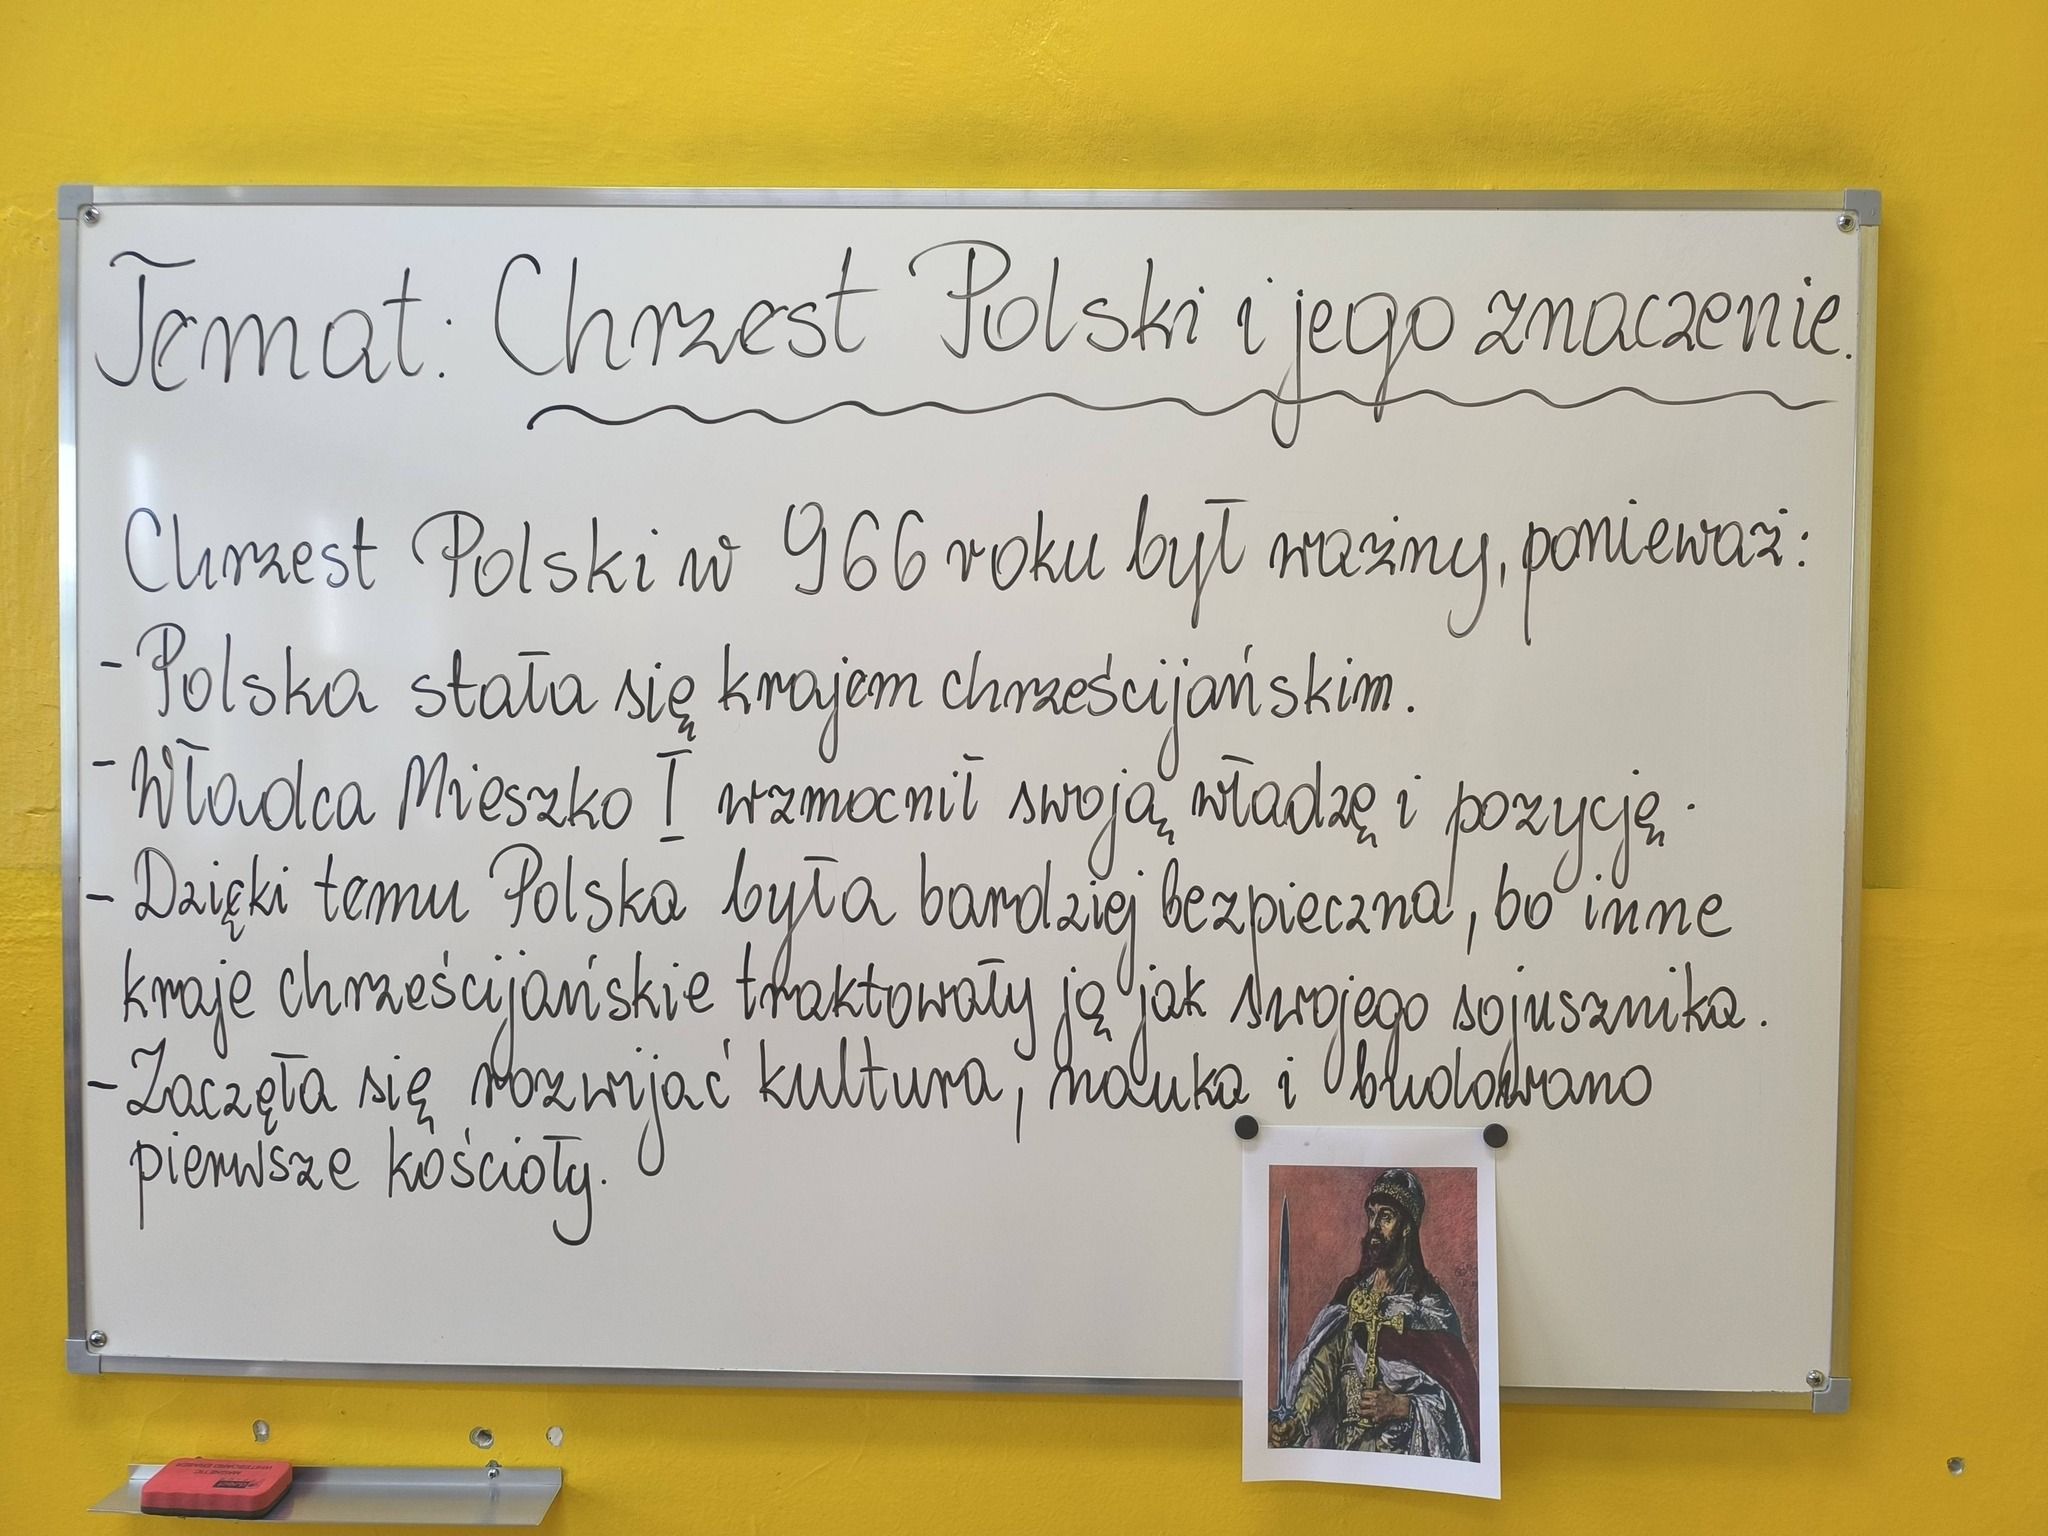 Temat: Chrzest Polski i jego znaczenie.
Chrzest Polski w 966 roku był ważny, ponieważ:
- Polska stała się krajem chrześcijańskim.
- Władca Mieszko I wzmocnił swoją władzę i pozycję.
- Dzięki temu Polska była bardziej bezpieczna, bo inne
kraje chrześcijańskie traktowały ją jak swojego sojusznika.
- Zaczęła się rozwijać kultura, nauka i budowano
pierwsze kościoły.
MAGNETIC
WHITEBOARD ERASER